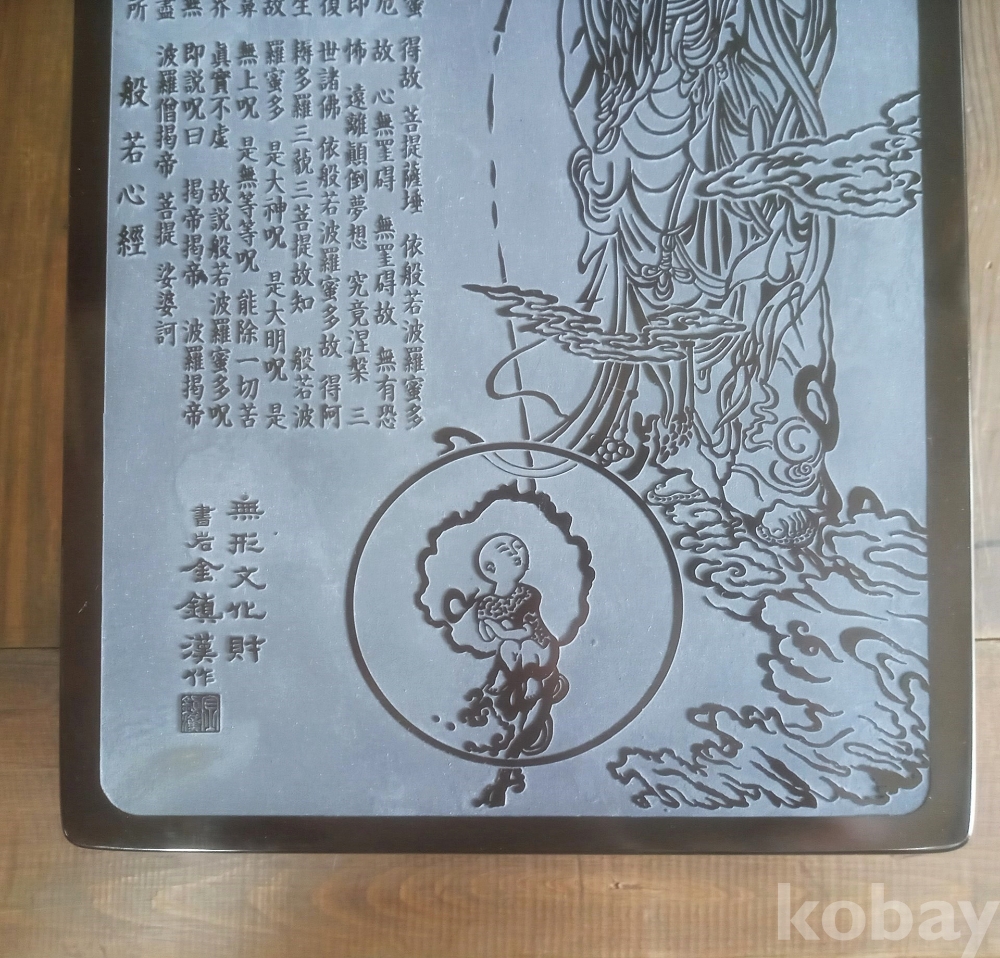 蜜
厄
即
復
生
故
鼻
界
無
盡
所
得故 菩提薩埵 依般若波羅蜜多
故 心無罣碍 無罣碍故 無有恐
怖 遠離顚倒夢想 究竟涅槃 三
世諸佛 依般若波羅蜜多故 得阿
耨多羅三藐三菩提故知 般若波
羅蜜多 是大神呪 是大明呪 是
無上呪 是無等等呪 能除一切苦
眞實不虛 故説般若波羅蜜多呪
即説呪曰 揭帝揭帝 波羅揭帝
波羅僧揭帝 菩提 娑婆訶
般若心經
無形文化財
書岩金鎭漢作
kobay